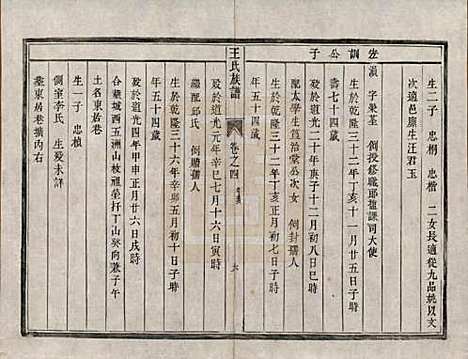 生二子 忠桐 忠楷 二女長適從九品姚以文
次適邑庠生汪君玉
左訓公子
灝 字秉荃 例授登職郎提課司大使
生於乾隆三十二年丁亥十一月廿五日子時
壽七十四歲
歿於道光二十年庚子十二月初八日巳時
配太學生篔治棠公次女 例封孺人
生於乾隆三十二年丁亥正月初七日子時
年五十四歲
王氏族譜
卷之四
六
歿於道光元年辛巳七月十六日寅時
繼配邱氏 例贈孺人
生於乾隆三十六年辛卯五月初十日子時
年五十四歲
歿於道光四年甲申正月廿六日戌時
合葬城西五洲山枝祖塋扦丁山癸向兼子午
土名東居巷
生一子 忠楨
側室李氏 生歿未詳
葬東居巷壙內右